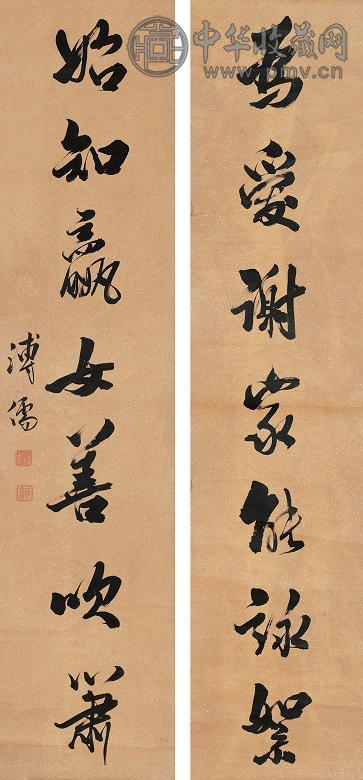 為愛謝家能詠絮
始知嬴女善吹簫
溥儒
中华收藏网
www.pmv.cn